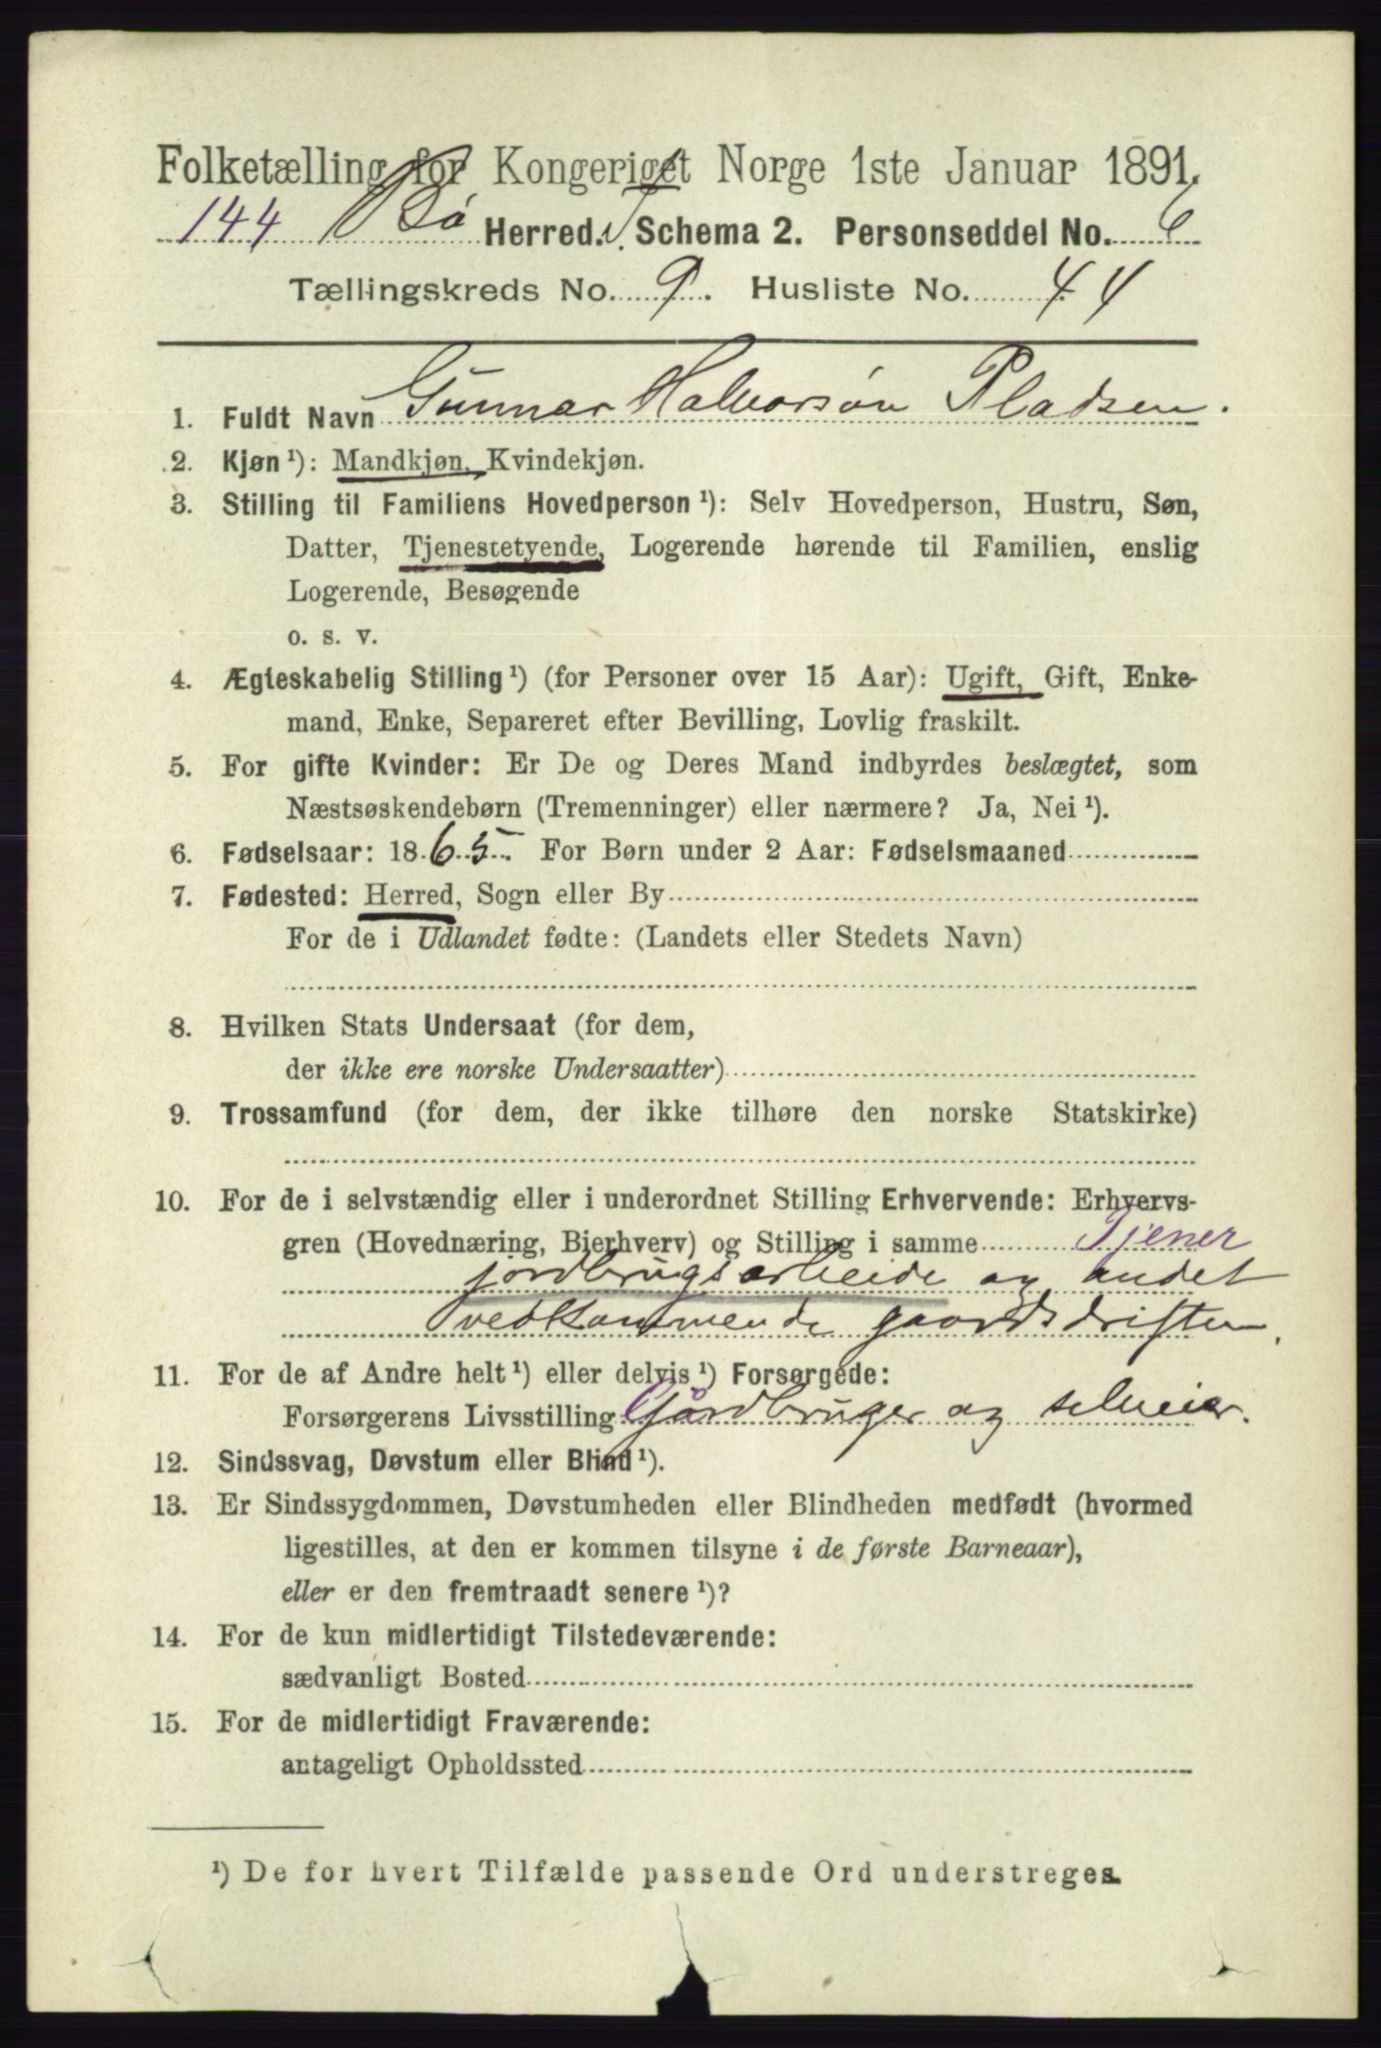 Folketælling for Kongeriget Norge 1ste Januar 1891.
144 Bø Herred. T. Schema 2. Personseddel No. 6
Tællingskreds No. 9. Husliste No. 44
1. Fuldt Navn Gunnar Halvorsøn Pladsen.
2. Kjøn ¹): Mandkjøn, Kvindekjøn.
3. Stilling til Familiens Hovedperson ¹): Selv Hovedperson, Hustru, Søn,
Datter, Tjenestetyende, Logerende hørende til Familien, enslig
Logerende, Besøgende
o. s. v.
4. Ægteskabelig Stilling ¹) (for Personer over 15 Aar): Ugift, Gift, Enke-
mand, Enke, Separeret efter Bevilling, Lovlig fraskilt.
5. For gifte Kvinder: Er De og Deres Mand indbyrdes beslægtet, som
Næstsøskendebørn (Tremenninger) eller nærmere? Ja, Nei ¹).
6. Fødselsaar: 1865. For Børn under 2 Aar: Fødselsmaaned
7. Fødested: Herred, Sogn eller By
For de i Udlandet fødte: (Landets eller Stedets Navn)
8. Hvilken Stats Undersaat (for dem,
der ikke ere norske Undersaatter)
9. Trossamfund (for dem, der ikke tilhøre den norske Statskirke)
10. For de i selvstændig eller i underordnet Stilling Erhvervende: Erhvervs-
gren (Hovednæring, Bierhverv) og Stilling i samme Tjener
jordbrugsarbeide og andet
vedkommende gaardsdriften.
11. For de af Andre helt ¹) eller delvis ¹) Forsørgede:
Forsørgerens Livsstilling Gårdbruger og selveier.
12. Sindssvag, Døvstum eller Blind ¹).
13. Er Sindssygdommen, Døvstumheden eller Blindheden medfødt (hvormed
ligestilles, at den er kommen tilsyne i de første Barneaar),
eller er den fremtraadt senere ¹)?
14. For de kun midlertidigt Tilstedeværende:
sædvanligt Bosted
15. For de midlertidigt Fraværende:
antageligt Opholdssted
¹) De for hvert Tilfælde passende Ord understreges.